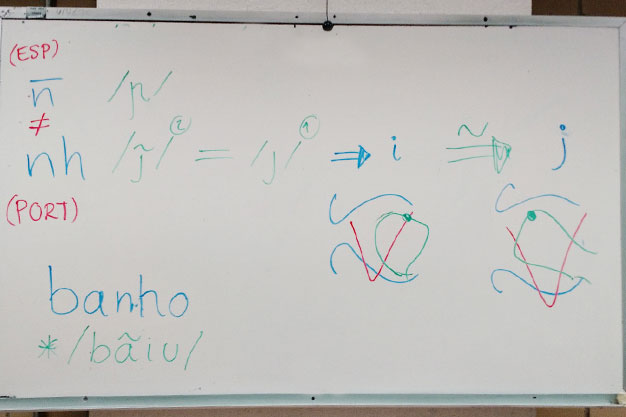 (ESP)
n̄ /ɲ/
≠
nh /j̃/ ② = /j/ ① ⇒ i ~⇒ j
(PORT)
banho
*/bãiu/